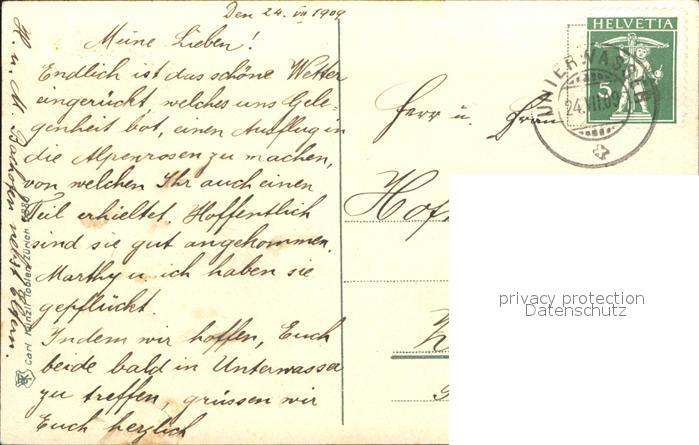 Den 24. VII 1909
Meine Lieben!
Endlich ist das schöne Wetter
eingerückt, welches uns Gele-
genheit bot, einen Ausflug in
die Alpenrosen zu machen,
von welchen Ihr auch einen
Teil erhieltet. Hoffentlich
sind sie gut angekommen.
Marthy u. ich haben sie
gepflückt.
Indem wir hoffen, Euch
beide bald in Unterwasser
zu treffen, grüssen wir
Euch herzlich
H. u. M. nebst Eltern.
Carl Künzli-Tobler, Zürich
Herr u. Frau
HELVETIA
5
UNTERWASSER
24.VII.09
privacy protection
Datenschutz